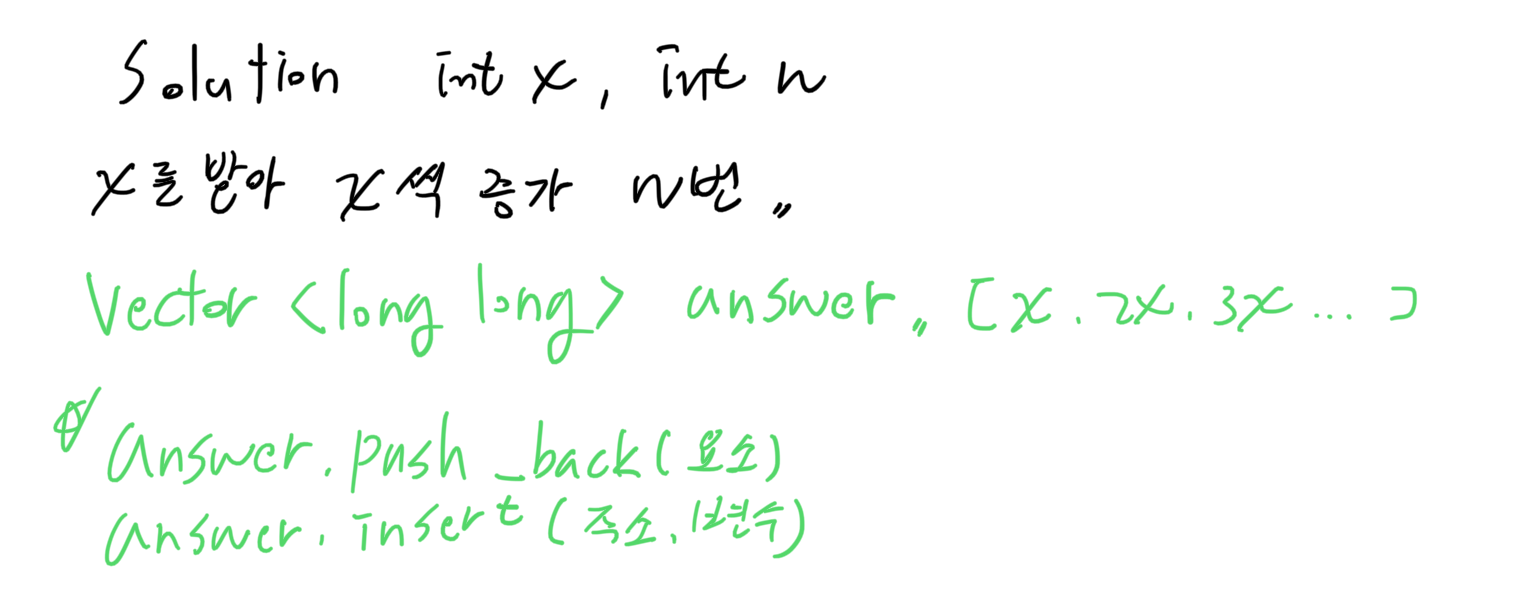 Solution int x, int n
x를 받아 x씩 증가 n번 〃
Vector <long long> answer 〃 [x. 2x. 3x ... ]
answer. push_back(요소)
answer. insert (주소. 변수)